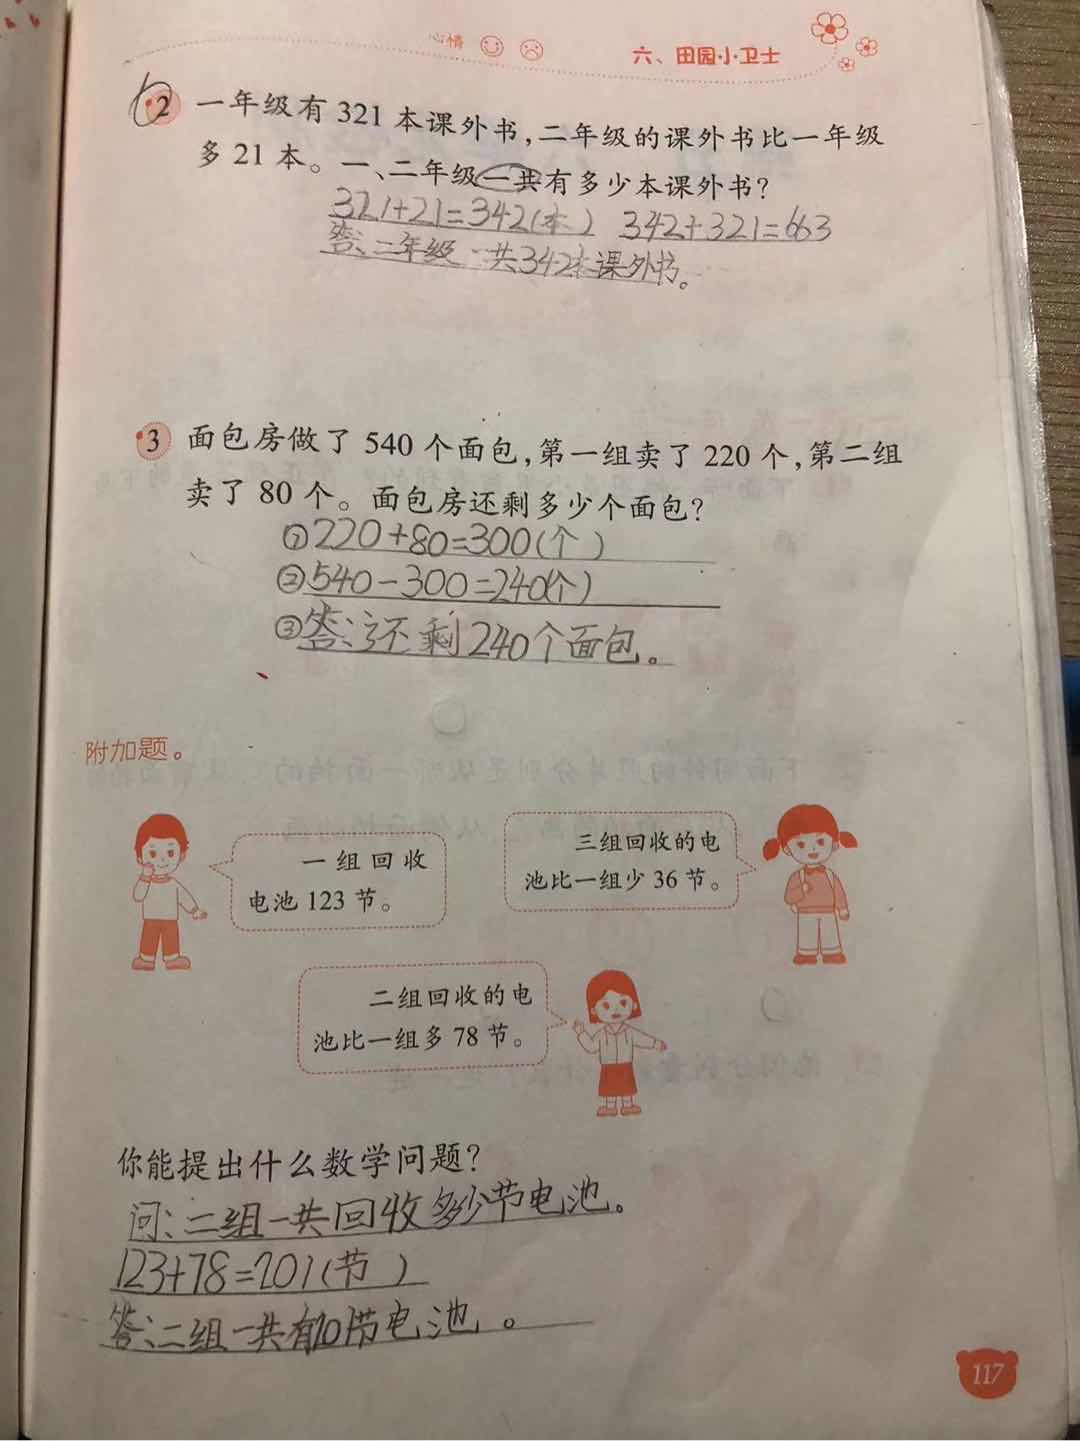 心情
六、田园小卫士
2 一年级有 321 本课外书，二年级的课外书比一年级
多 21 本。一、二年级一共有多少本课外书？
321+21=342(本) 342+321=663
答：二年级一共342本课外书。
3 面包房做了 540 个面包，第一组卖了 220 个，第二组
卖了 80 个。面包房还剩多少个面包？
①220+80=300(个)
②540-300=240(个)
③答：还剩240个面包。
附加题。
一组回收
电池 123 节。
三组回收的电
池比一组少 36 节。
二组回收的电
池比一组多 78 节。
你能提出什么数学问题？
问：二组一共回收多少节电池。
123+78=201(节)
答：二组一共有201节电池。
117